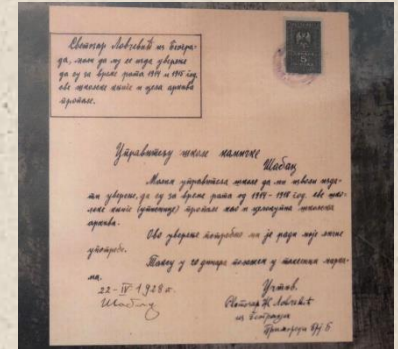 Светозар Ловчевић из Београ-
да, моли да му се изда уверење
да су за време рата 1914 и 1915 год.
све школске књиге и цела архива
пропале.
5
Управитељу школе
Шабац
Молим управитеља школе да ми изволи изда-
ти уверење, да су за време рата од 1914 - 1918 год. све шко-
лске књиге (уписнице) пропале као и целокупна школска
архива.
Ово уверење потребно ми је ради моје личне
употребе.
Таксу у 20 динара положен у таксеним марка-
ма.
22-IV 1928 г.
Шабац
Учтив.
Светозар Ловчевић
из Београда